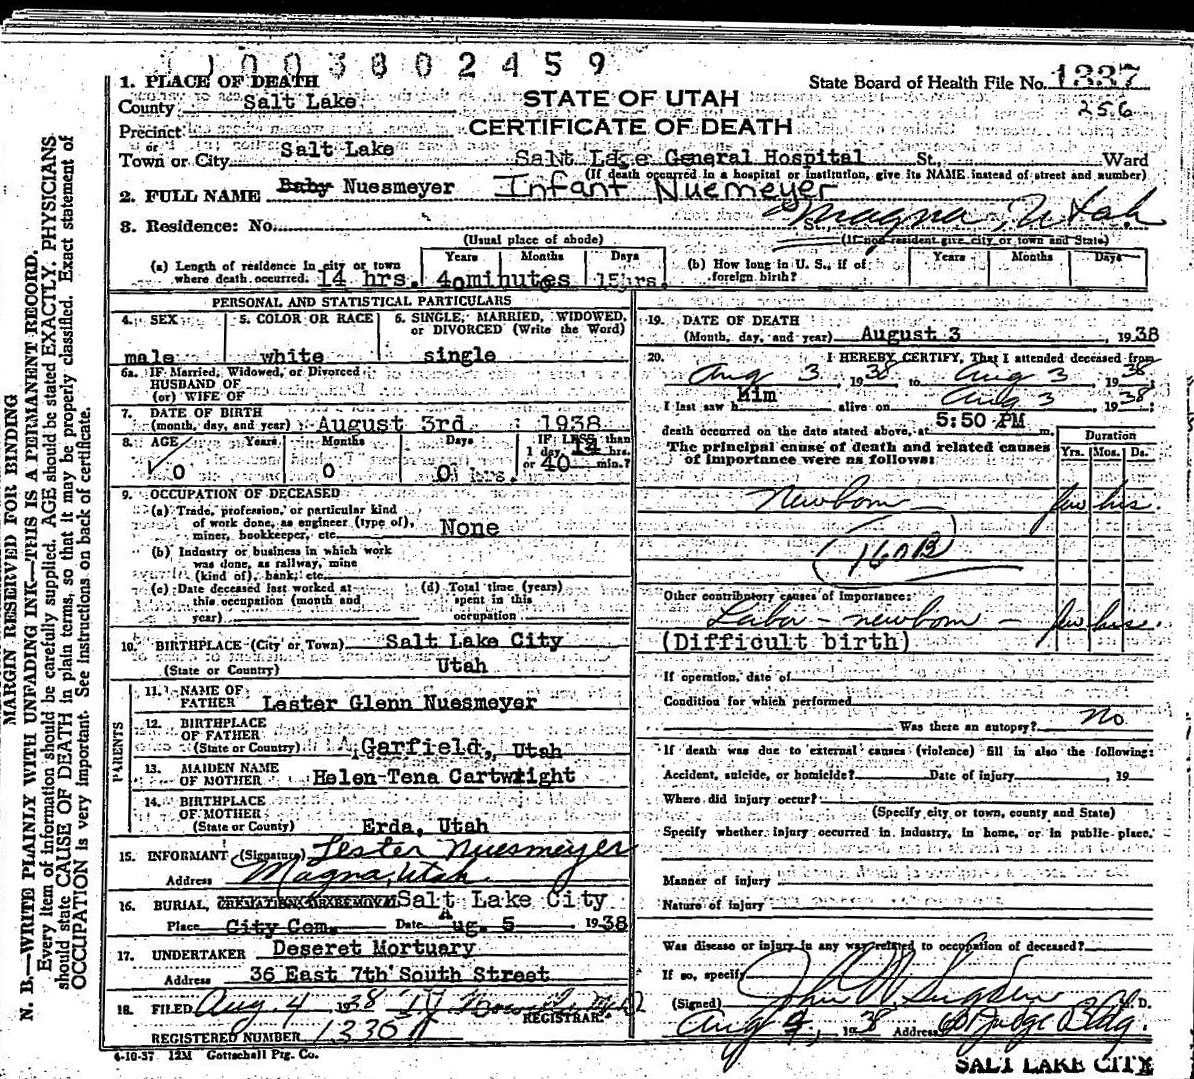 1003802459
1. PLACE OF DEATH
State Board of Health File No. 1337
County Salt Lake
STATE OF UTAH
256
Precinct
CERTIFICATE OF DEATH
or
Town or City Salt Lake Salt Lake General Hospital St., Ward
(If death occurred in a hospital or institution, give its NAME instead of street and number)
2. FULL NAME Baby Nuesmeyer Infant Nuemeyer
3. Residence: No. St., Magna, Utah.
(Usual place of abode) (If non-resident give city or town and State)
(a) Length of residence in city or town where death occurred. 14 hrs. Years 40 minutes Months Days 15 hrs.
(b) How long in U. S., if of foreign birth? Years Months Days
PERSONAL AND STATISTICAL PARTICULARS
4. SEX male
5. COLOR OR RACE white
6. SINGLE, MARRIED, WIDOWED, or DIVORCED (Write the Word) single
6a. IF Married, Widowed, or Divorced
HUSBAND OF
(or) WIFE OF
7. DATE OF BIRTH
(month, day, and year) August 3rd 1938
8. AGE Years 0 Months 0 Days 0 hrs. IF LESS than 1 day 14 hrs. or 40 min.?
9. OCCUPATION OF DECEASED
(a) Trade, profession, or particular kind
of work done, as engineer (type of),
miner, bookkeeper, etc. None
(b) Industry or business in which work
was done, as railway, mine
(kind of), bank, etc.
(c) Date deceased last worked at
this occupation (month and
year)
(d) Total time (years)
spent in this
occupation
10. BIRTHPLACE (City or Town) Salt Lake City
(State or Country) Utah
PARENTS
11. NAME OF
FATHER Lester Glenn Nuesmeyer
12. BIRTHPLACE
OF FATHER
(State or County) Garfield, Utah
13. MAIDEN NAME
OF MOTHER Helen-Tena Cartwright
14. BIRTHPLACE
OF MOTHER
(State or County) Erda, Utah
15. INFORMANT (Signature) Lester Nuesmeyer
Address Magna, Utah.
16. BURIAL, CREMATION OR REMOVAL Salt Lake City
Place City Cem. Date Aug. 5 1938
17. UNDERTAKER Deseret Mortuary
Address 36 East 7th South Street
18. FILED Aug. 4 1938
REGISTRAR.
REGISTERED NUMBER 1330
4-10-37 12M Gottschall Ptg. Co.
19. DATE OF DEATH
(Month, day, and year) August 3, 1938
20. I HEREBY CERTIFY, That I attended deceased from
Aug 3, 1938 to Aug 3, 1938
I last saw him alive on Aug 3, 1938
death occurred on the date stated above, at 5:50 PM m.
The principal cause of death and related causes
of importance were as follows:
Duration
Yrs. Mos. Ds.
Newborn few hrs.
(160B)
Other contributory causes of importance:
Labor - newborn - few hrs.
(Difficult birth)
If operation, date of
Condition for which performed
Was there an autopsy? No
If death was due to external causes (violence) fill in also the following:
Accident, suicide, or homicide? Date of injury , 19
Where did injury occur?
(Specify city or town, county and State)
Specify whether injury occurred in industry, in home, or in public place.
Manner of injury
Nature of injury
Was disease or injury in any way related to occupation of deceased?
If so, specify
(Signed) John W. Sugden M. D.
Aug 4, 1938 Address 60 Judge Bldg.
SALT LAKE CITY
MARGIN RESERVED FOR BINDING
N. B.—WRITE PLAINLY WITH UNFADING INK—THIS IS A PERMANENT RECORD.
Every item of information should be carefully supplied. AGE should be stated EXACTLY. PHYSICIANS
should state CAUSE OF DEATH in plain terms, so that it may be properly classified. Exact statement of
OCCUPATION is very important. See instructions on back of certificate.